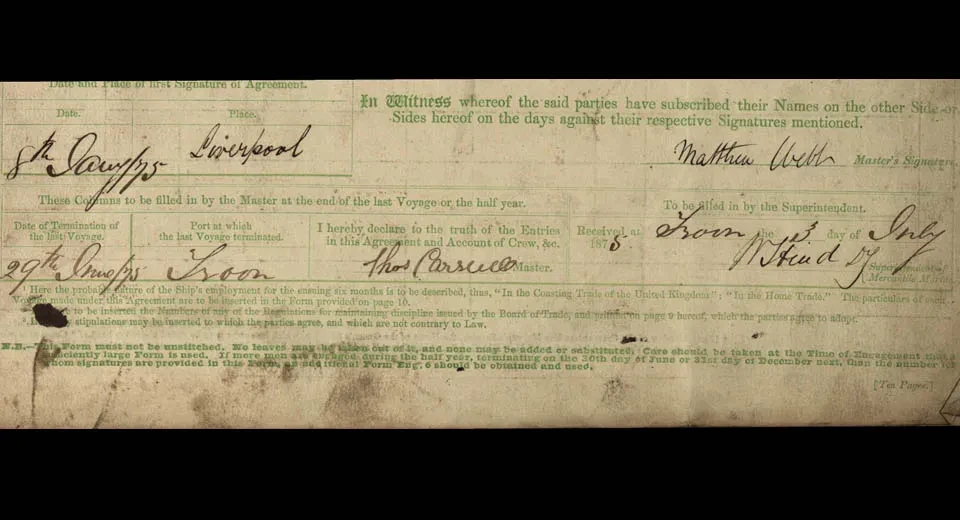 Date and Place of first Signature of Agreement.
Date. Place.
8th Jany/75 Liverpool
In Witness whereof the said parties have subscribed their Names on the other Side or
Sides hereof on the days against their respective Signatures mentioned.
Matthew Webb Master's Signature.
These Columns to be filled in by the Master at the end of the last Voyage or the half year.
To be filled in by the Superintendent.
Date of Termination of
the last Voyage.
29th June/75
Port at which
the last Voyage terminated.
Troon
I hereby declare to the truth of the Entries
in this Agreement and Account of Crew, &c.
Thos Master.
Received at Troon the 3 day of July
1875.
W Hind Dy Superintendent
Mercantile
Here the probable nature of the Ship's employment for the ensuing six months is to be described, thus, "In the Coasting Trade of the United Kingdom"; "In the Home Trade." The particulars of each
Voyage made under this Agreement are to be inserted in the Form provided on page 10.
to be inserted the Numbers of any of the Regulations for maintaining discipline issued by the Board of Trade, and printed on page 9 hereof, which the parties agree to adopt.
stipulations may be inserted to which the parties agree, and which are not contrary to Law.
N.B.—This Form must not be unstitched. No leaves may be taken out of it, and none may be added or substituted. Care should be taken at the Time of Engagement that a
sufficiently large Form is used. If more men are engaged during the half year, terminating on the 30th day of June or 31st day of December next, than the number for
whom signatures are provided in this Form, an additional Form Eng. 6 should be obtained and used.
[Ten Pages.]